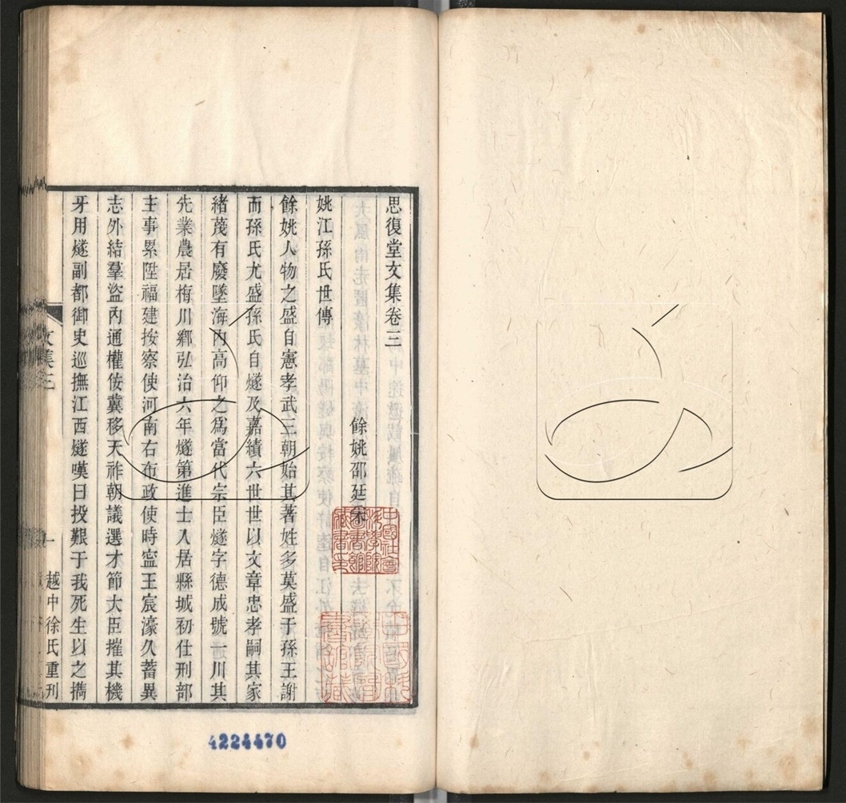 思復堂文集卷三
餘姚邵廷宷
姚江孫氏世傳
餘姚人物之盛自憲孝武三朝始其著姓多莫盛于孫王謝
而孫氏尤盛孫氏自燧及嘉績六世世以文章忠孝嗣其家
緒茂有廢墜海內高仰之為當代宗臣燧字德成號一川其
先業農居梅川鄉弘治六年燧第進士入居縣城初仕刑部
主事累陞福建按察使河南右布政使時寧王宸濠久蓄異
志外結羣盜內通權倿冀移天祚朝議選才節大臣摧其機
牙用燧副都御史巡撫江西燧嘆曰投艱于我死生以之攜
文集三
一
越中徐氏重刊
4224470